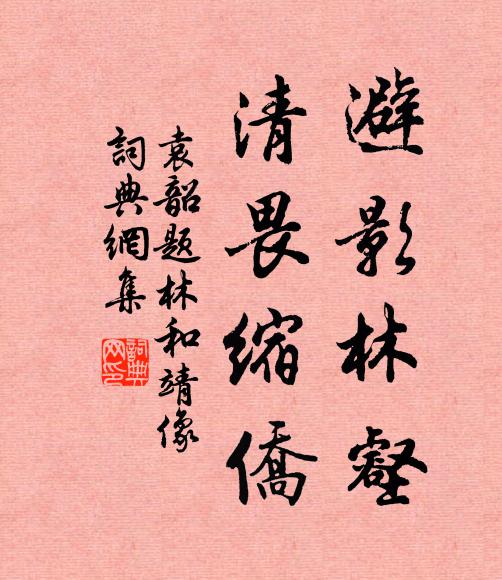 避影林壑
清畏縮僑
袁韶题林和靖像
詞典網集
詞典网印